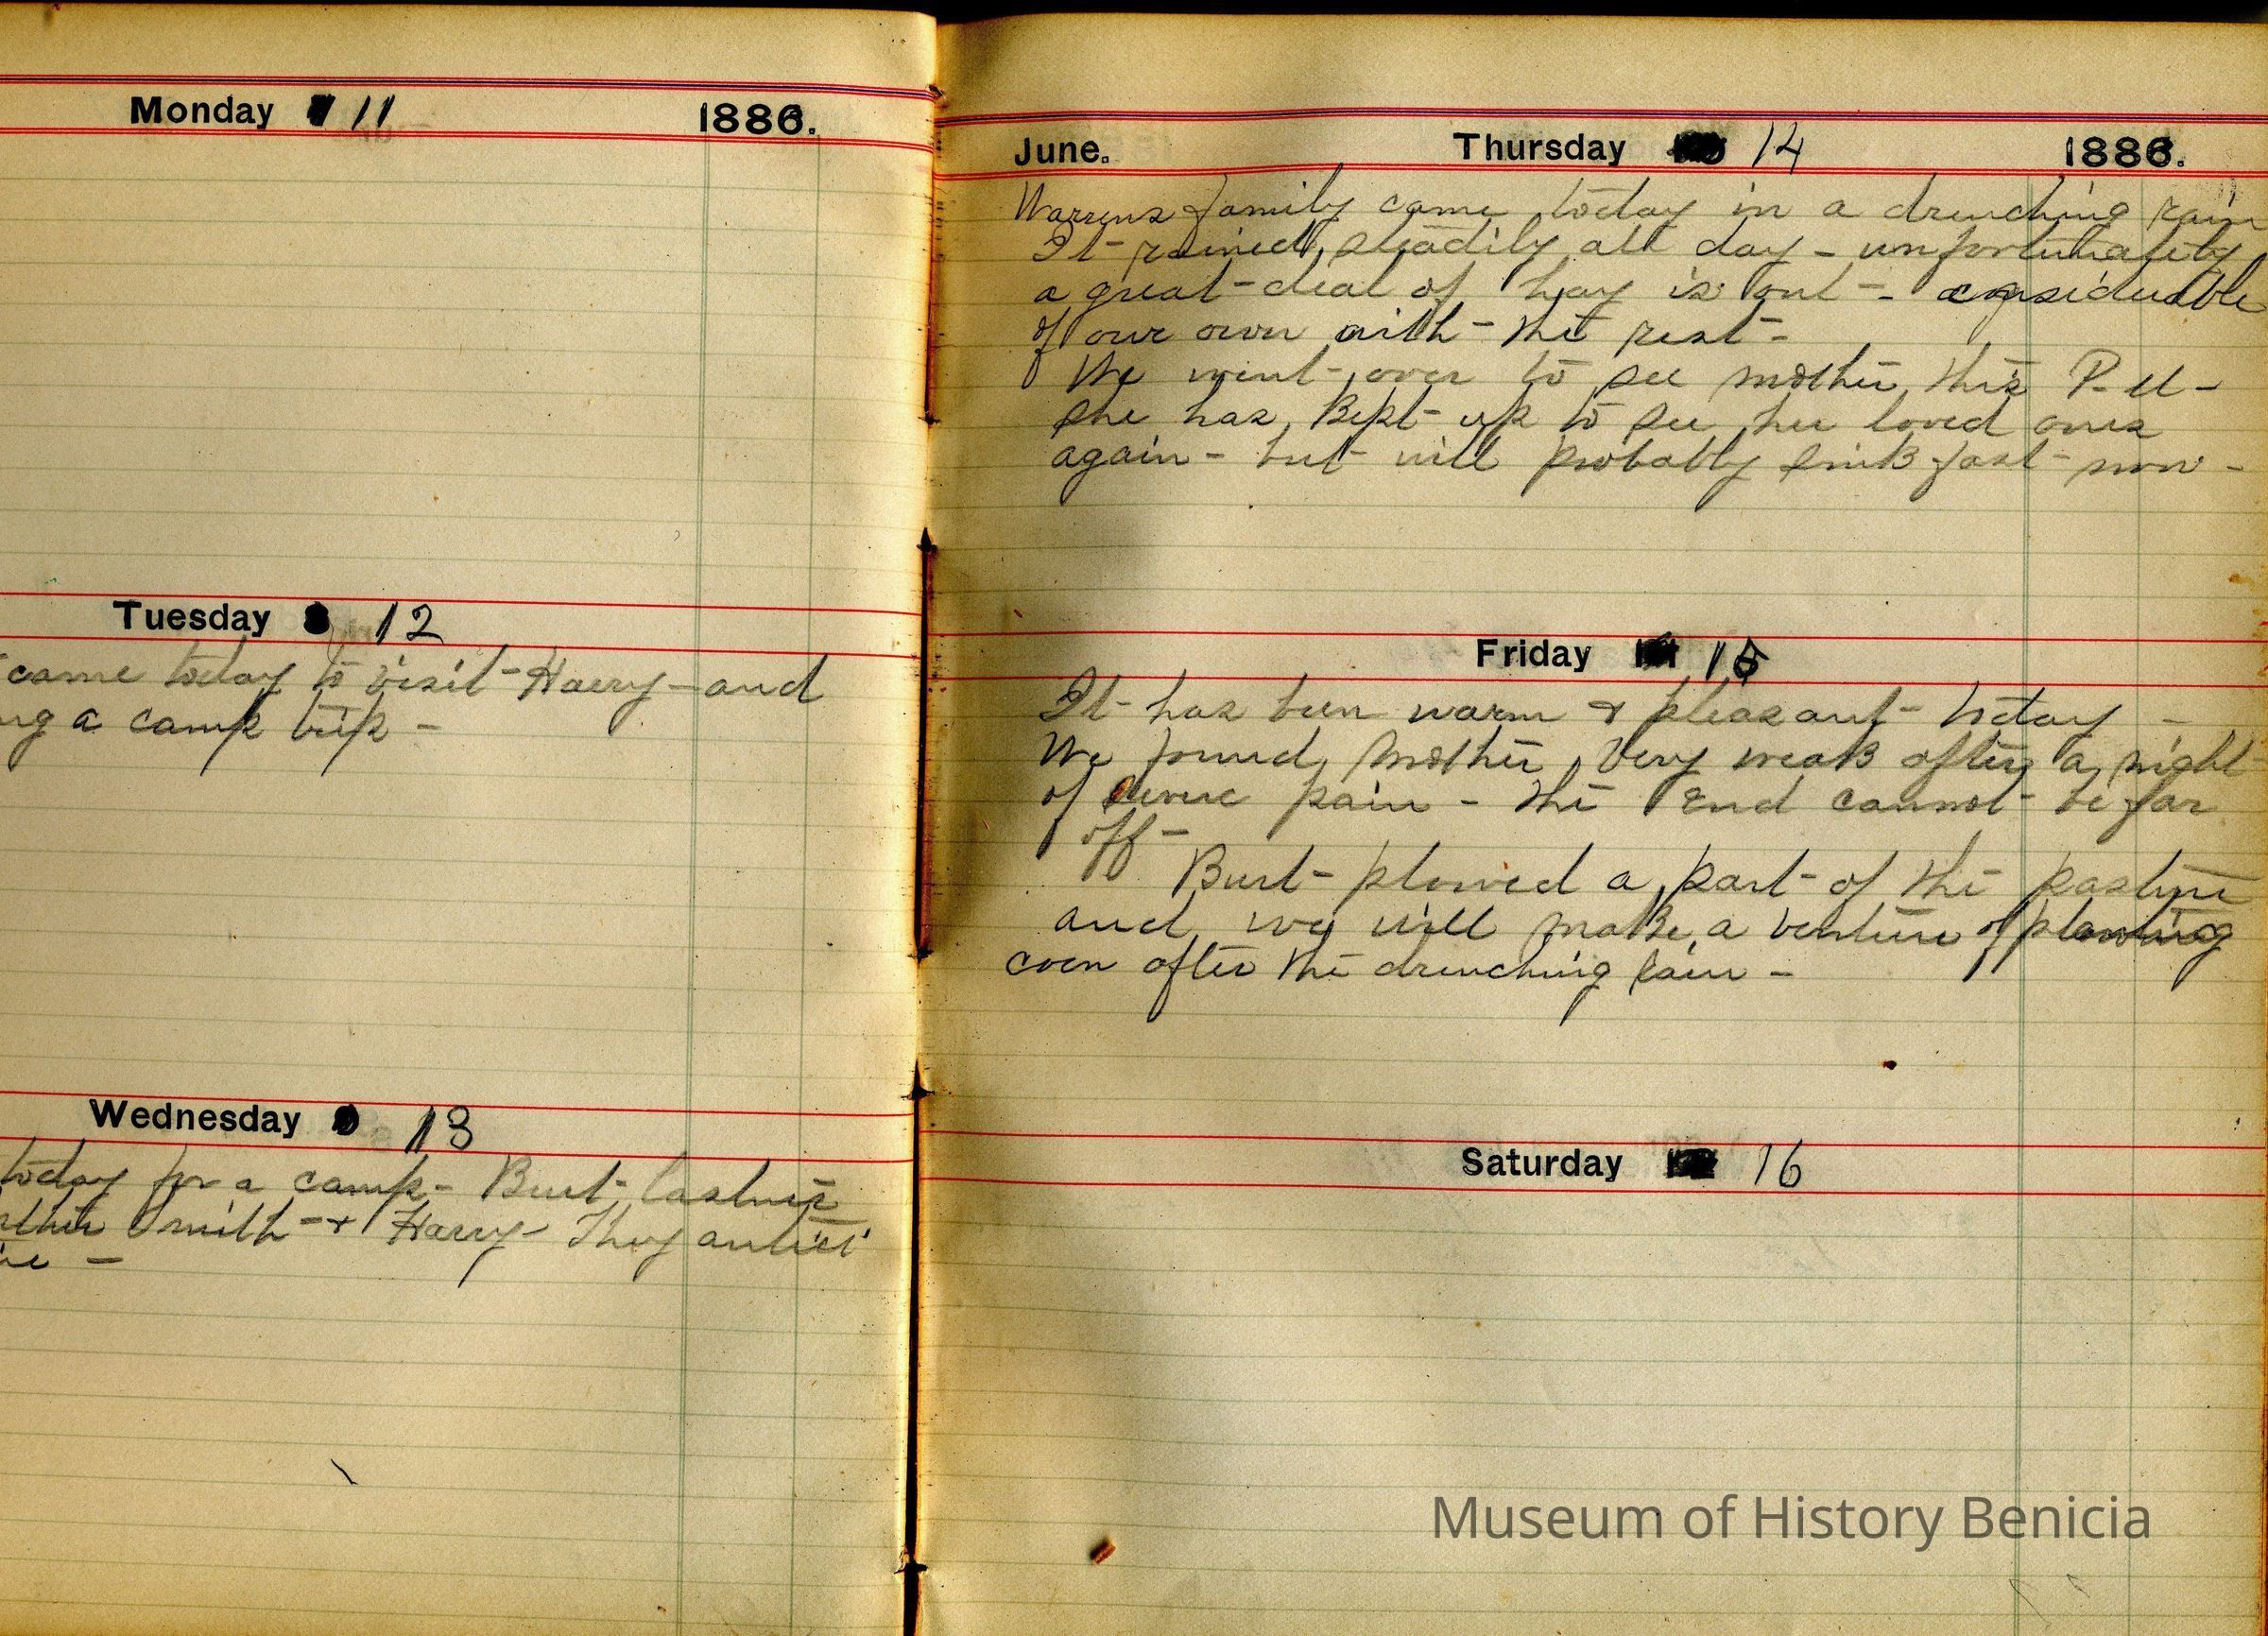 Monday 11 1886.
Tuesday 12
came today to visit - Harry - and
ng a camp trip -
Wednesday 13
today for a camp - Burt
Smith - + Harry - They
June. Thursday 14 1886.
Warrens family came today in a drenching rain
It - rained steadily all day - unfortunately
a great - deal of hay is out - - considerable
of our own with - the rest -
We went - over to see mother this P. M -
She has kept - up to see her loved ones
again - but - will probably sink fast - now -
Friday 15
It - has been warm + pleasant - today -
We found mother very weak after a night
of severe pain - The end cannot - be far
off -
Burt - plowed a part - of the pasture
and we will make a venture of plowing
even after the drenching rain -
Saturday 16
Museum of History Benicia